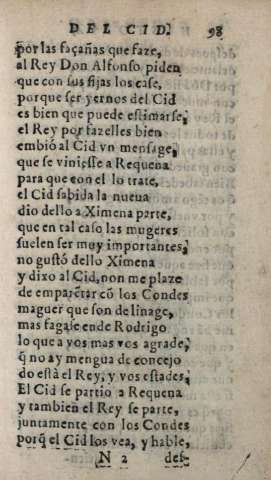 DEL CID. 98
por las façañas que faze,
al Rey Don Alfonso piden
que con sus fijas los case,
porque ser yernos del Cid
es bien que puede estimarse,
el Rey por fazelles bien
embiò al Cid vn mensage,
que se viniesse a Requena
para que con el lo trate,
el Cid sabida la nueua
dio dello a Ximena parte,
que en tal caso las mugeres
suelen ser muy importantes,
no gustó dello Ximena
y dixo al Cid, non me plaze
de emparẽtar cõ los Condes
maguer que son de linage,
mas fagase ende Rodrigo
lo que a vos mas vos agrade,
q̃ no ay mengua de concejo
do està el Rey, y vos estades,
El Cid se partio a Requena
y tambien el Rey se parte,
juntamente con los Condes
porq̃ el Cid los vea, y hable,
N 2 des-